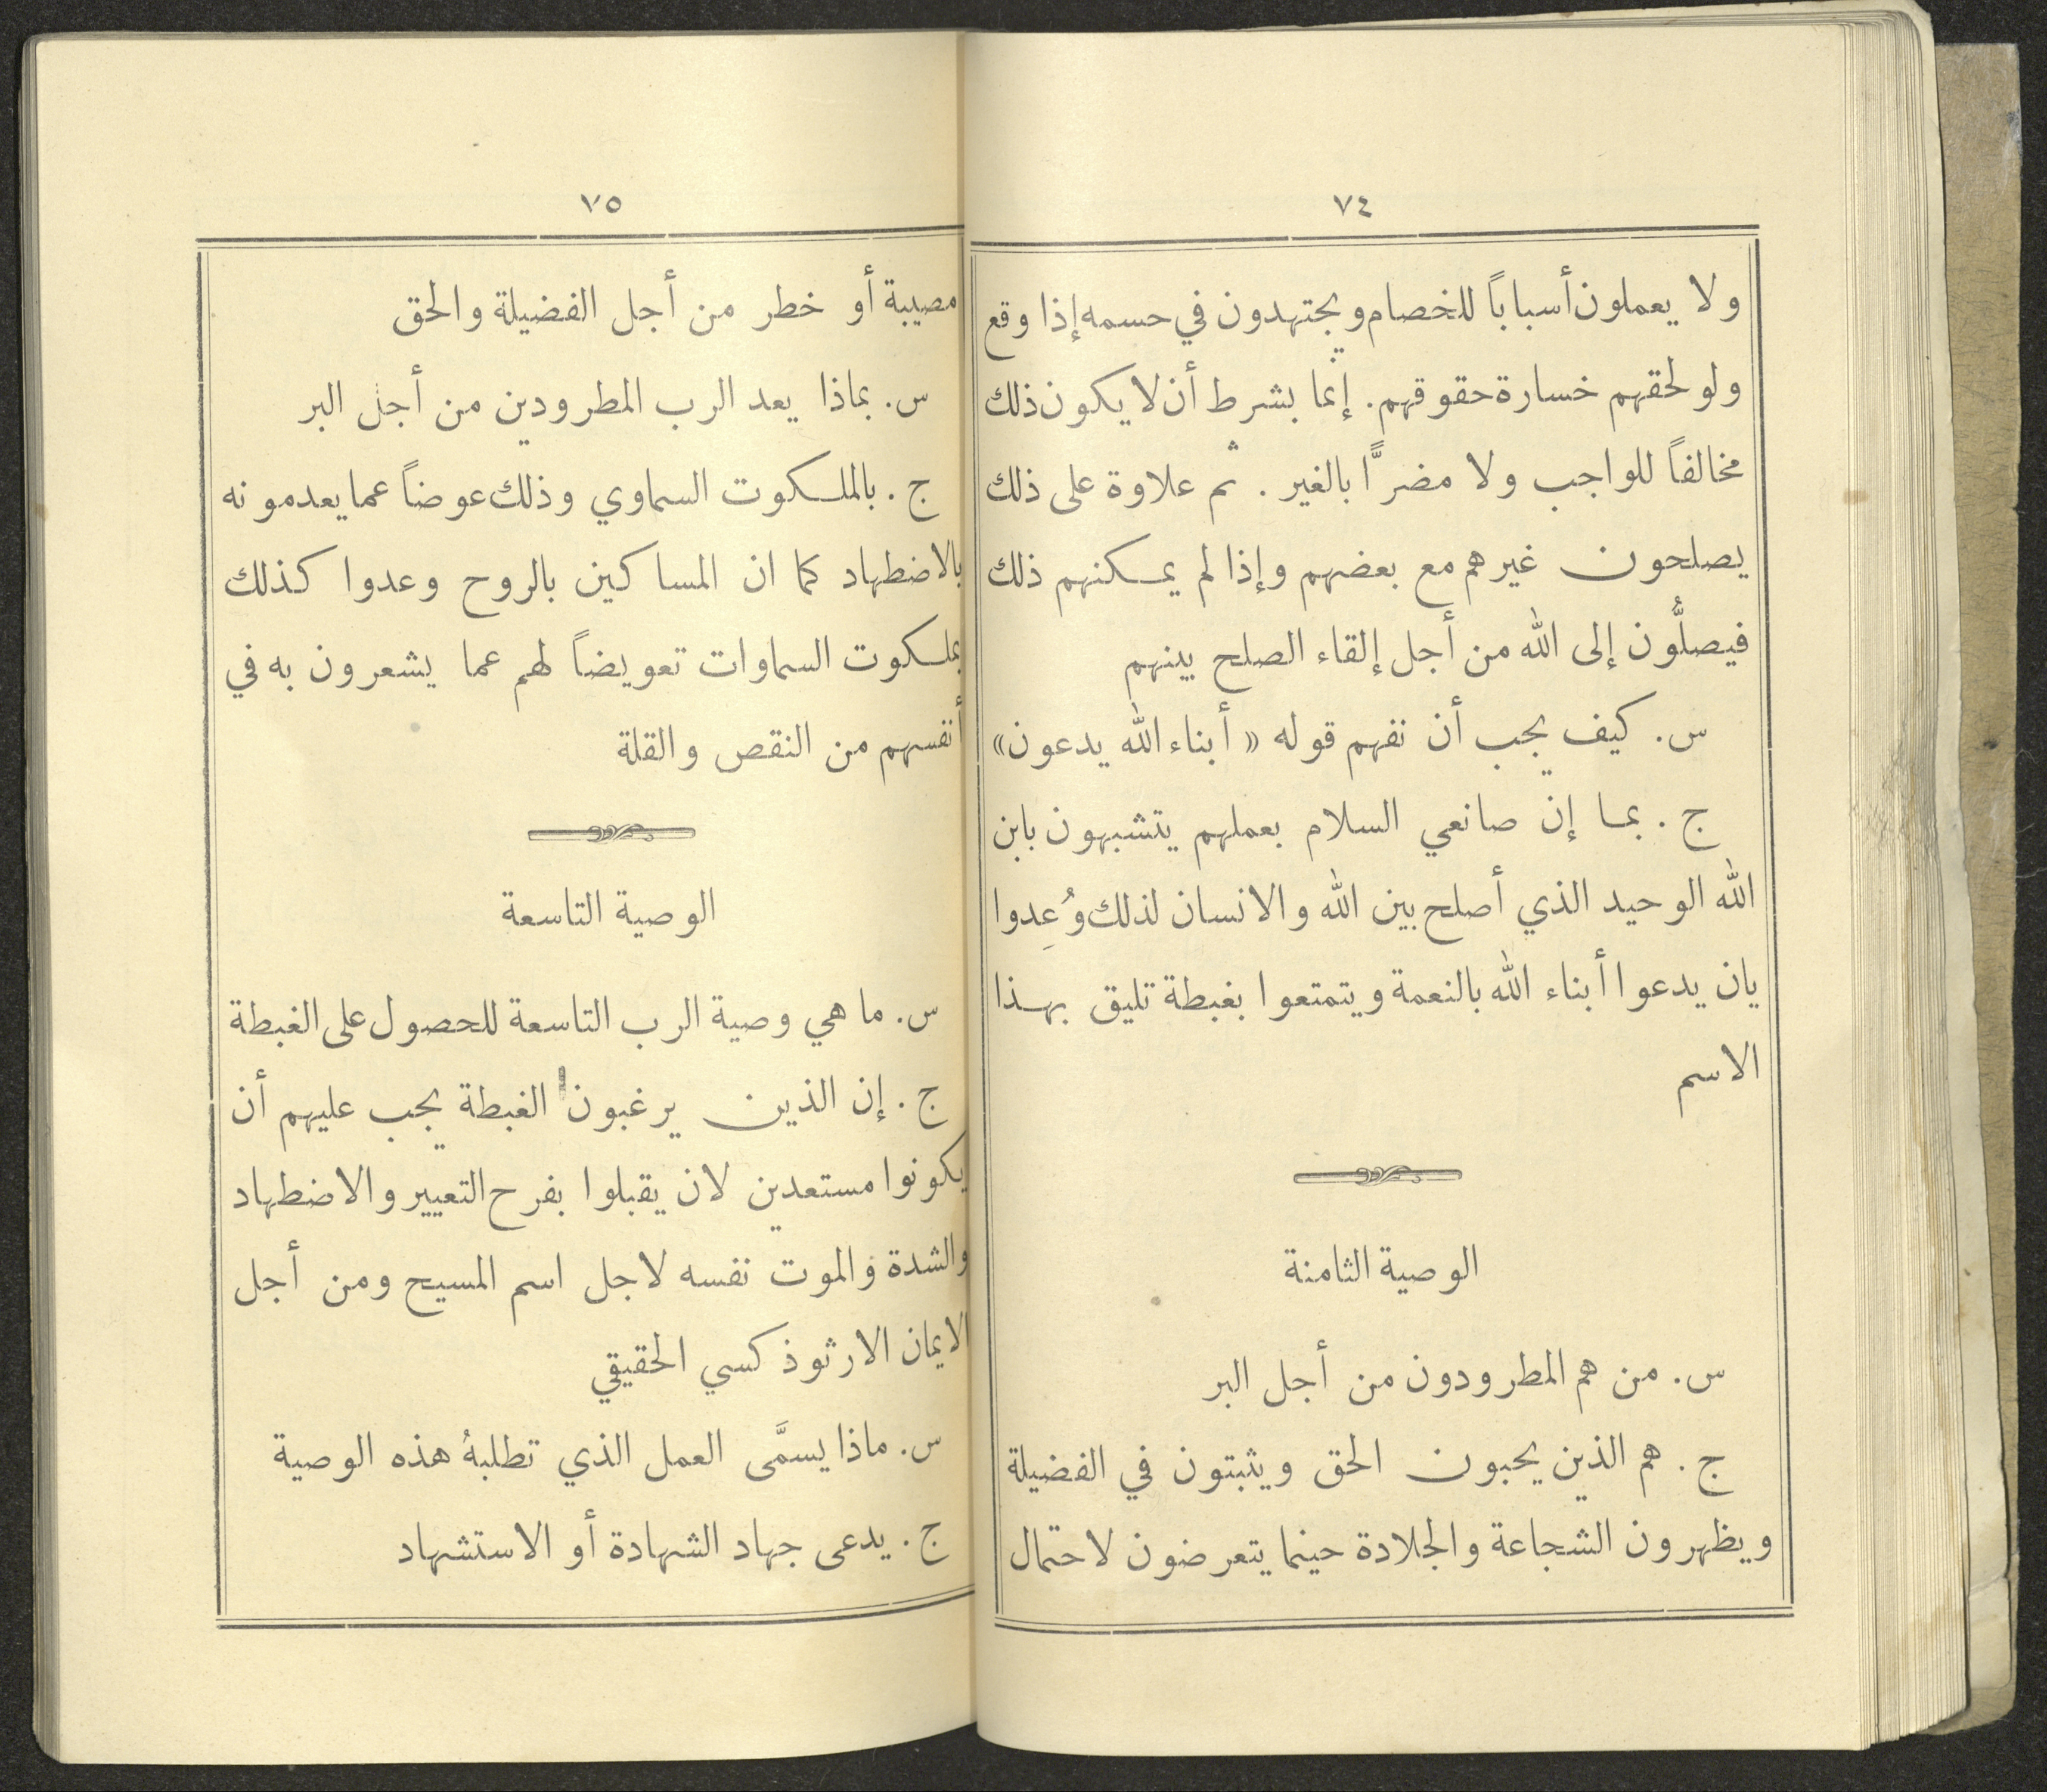 ٧٤
ولا يعملون أسباباً للخصام ويجتهدون في حسمه إذا وقع
ولو لحقهم خسارة حقوقهم. إنما بشرط أن لا يكون ذلك
مخالفاً للواجب ولا مضرًّا بالغير . ثم علاوة على ذلك
يصلحون غيرهم مع بعضهم وإذا لم يمكنهم ذلك
فيصلُّون إلى الله من أجل إلقاء الصلح بينهم
س. كيف يجب أن نفهم قوله «أبناء الله يدعون»
ج . بما إن صانعي السلام بعملهم يتشبهون بابن
الله الوحيد الذي أصلح بين الله والانسان لذلك وُعِدوا
يان يدعوا أبناء الله بالنعمة ويتمتعوا بغبطة تليق بهذا
الاسم
الوصية الثامنة
س. من هم المطرودون من أجل البر
ج . هم الذين يحبون الحق ويثبتون في الفضيلة
ويظهرون الشجاعة والجلادة حينما يتعرضون لاحتمال
٧٥
مصيبة أو خطر من أجل الفضيلة والحق
س. بماذا يعد الرب المطرودين من أجل البر
ج . بالملكوت السماوي وذلك عوضاً عما يعدمونه
بالاضطهاد كما ان المساكين بالروح وعدوا كذلك
بملكوت السماوات تعويضاً لهم عما يشعرون به في
أنفسهم من النقص والقلة
الوصية التاسعة
س. ما هي وصية الرب التاسعة للحصول على الغبطة
ج . إن الذين يرغبون الغبطة يجب عليهم أن
يكونوا مستعدين لان يقبلوا بفرح التعيير والاضطهاد
والشدة والموت نفسه لاجل اسم المسيح ومن أجل
الايمان الارثوذكسي الحقيقي
س. ماذا يسمَّى العمل الذي تطلبهُ هذه الوصية
ج . يدعى جهاد الشهادة أو الاستشهاد